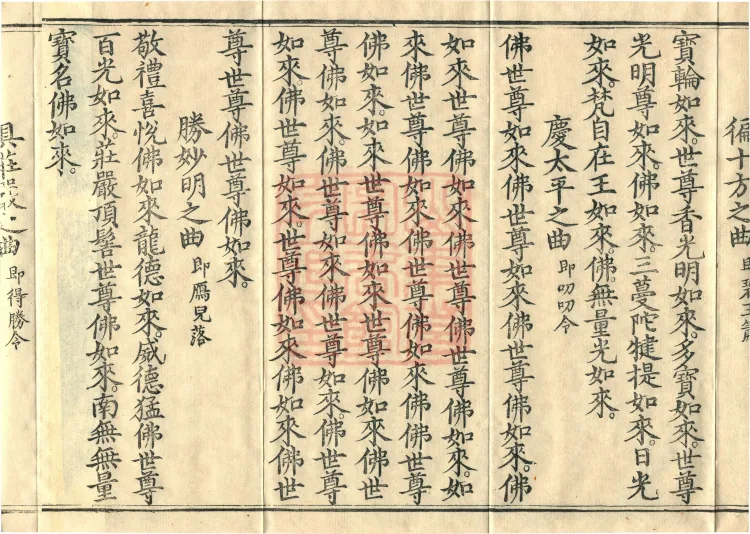 徧十方之曲 即
寶輪如來。世尊香光明如來。多寶如來。世尊
光明尊如來。佛如來。三曼陀犍提如來。日光
如來。梵自在王如來。佛。無量光如來。
慶太平之曲 即叨叨令
佛世尊如來佛世尊如來。佛世尊佛如來。佛
如來世尊佛如來世尊佛世尊佛如來。如
來佛世尊佛如來佛世尊佛如來佛世尊
佛如來。如來世尊佛如來世尊佛世尊佛世
尊世尊如來。佛世尊如來世尊如來。佛世尊
如來佛世尊如來。世尊佛如來佛如來佛世
尊世尊佛世尊佛如來。
勝妙明之曲 即鴈兒落
敬禮喜悅佛如來龍德如來。威德猛佛世尊
百光如來。莊嚴頂髻世尊佛如來。南無無量
寶名佛如來。
具莊之曲 即得勝令